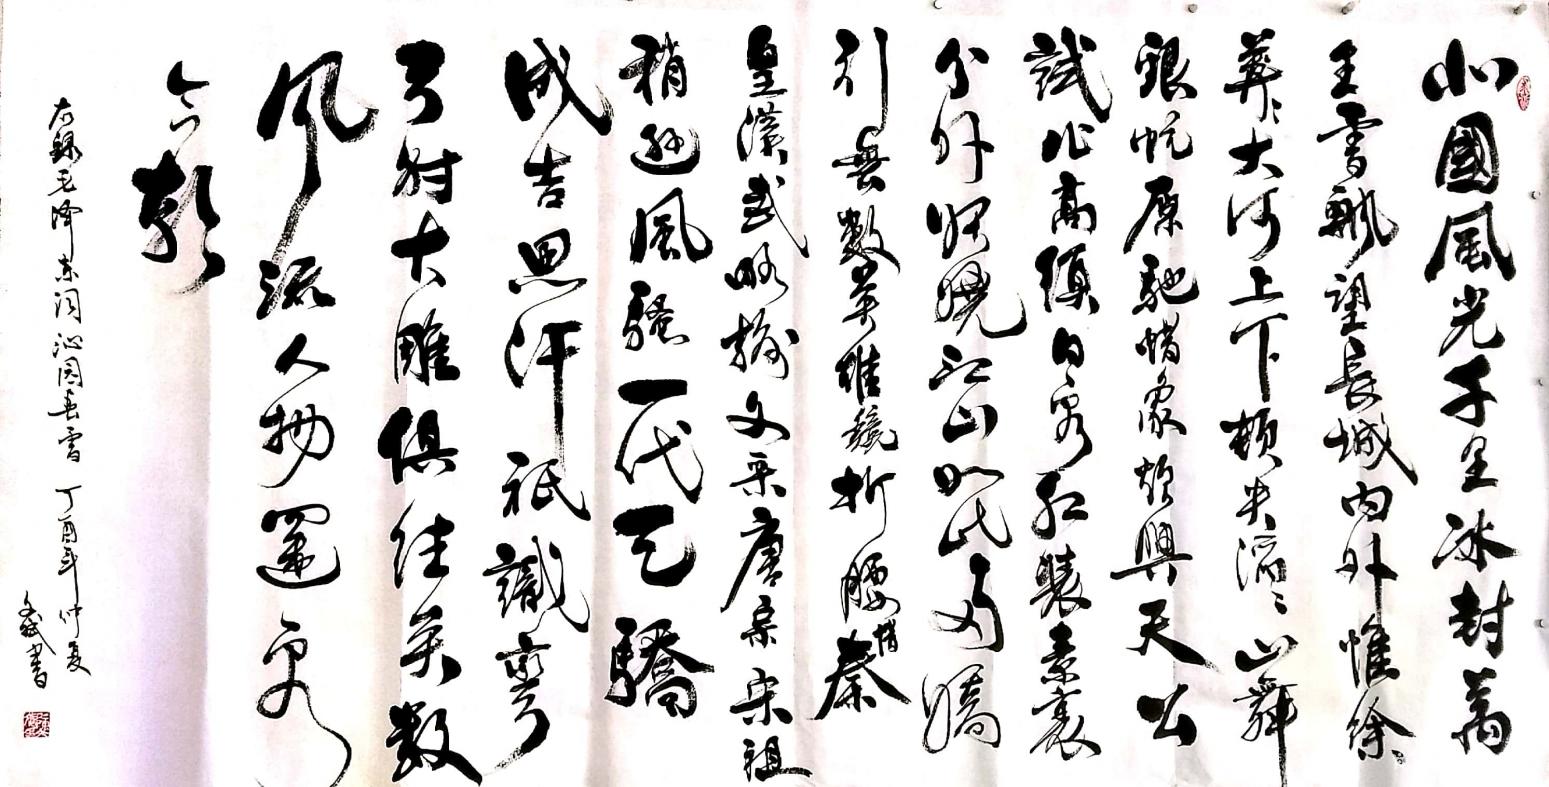 北國風光千里冰封萬
里雪飄望長城内外惟餘
莽〻大河上下頓失滔〻山舞
銀蛇原馳蠟象欲與天公
試比高須日看紅裝素裹
分外妖嬈江山如此多嬌
引無數英雄競折腰惜秦
皇漢武略輸文采唐宗宋祖
稍遜風騷一代天驕
成吉思汗祇識彎
弓射大雕俱往矣數
風流人物還看
今朝
右錄毛澤東詞沁园春雪 丁酉年仲夏
文斌書